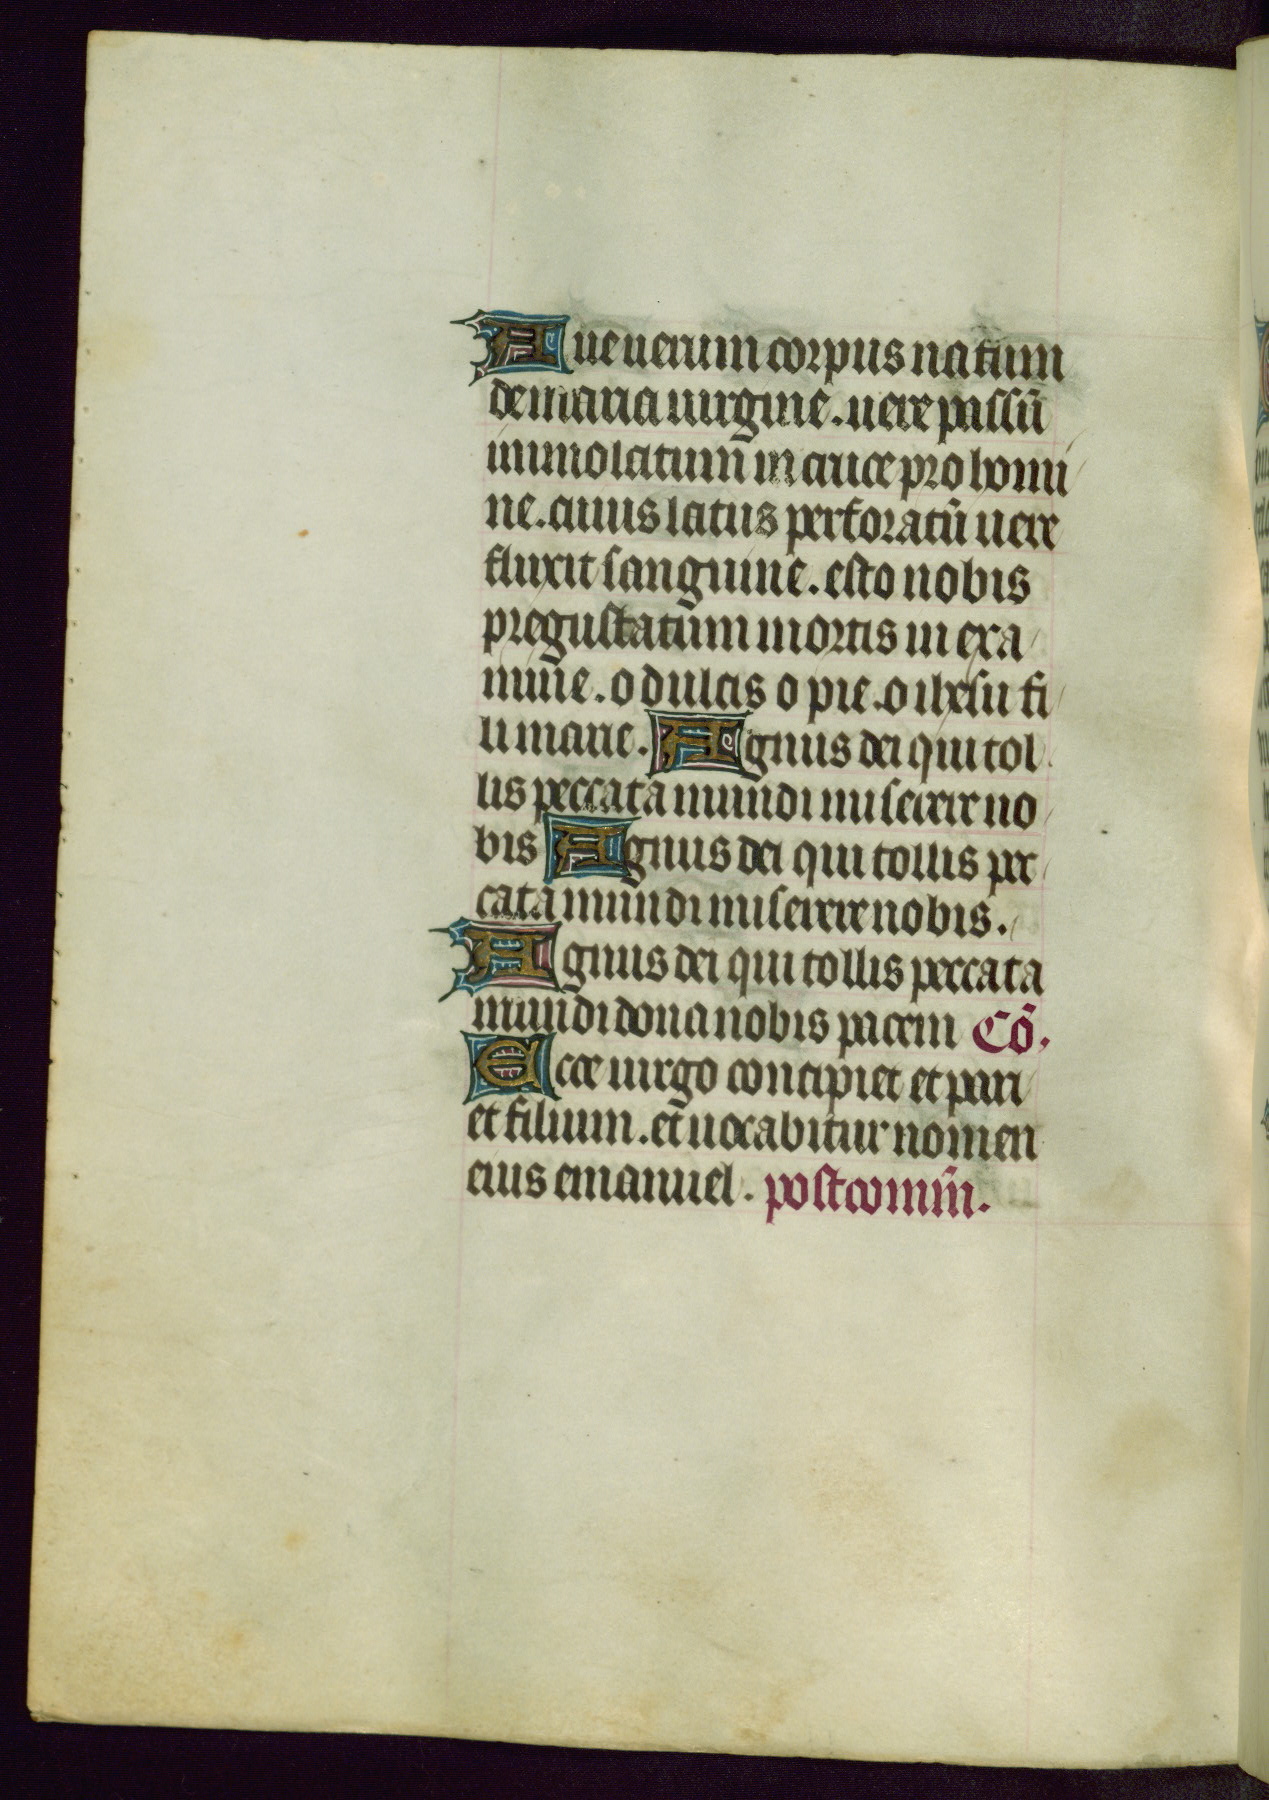 Aue uerum corpus natum
de maria uirgine. uere passū
immolatum̄ in cruce pro homi
ne. cuius latus perforatū uere
fluxit sanguine. esto nobis
pregustatum mortis in exa
mine. o dulcis o pie. o ihesu fi
li marie. Agnus dei qui tol
lis peccata mundi miserere no
bis Agnus dei qui tollis pec
cata mundi miserere nobis.
Agnus dei qui tollis peccata
mundi dona nobis pacem Cō.
Ecce uirgo concipiet et pari
et filium. et uocabitur nomen
eius emanuel. postcomm̄.